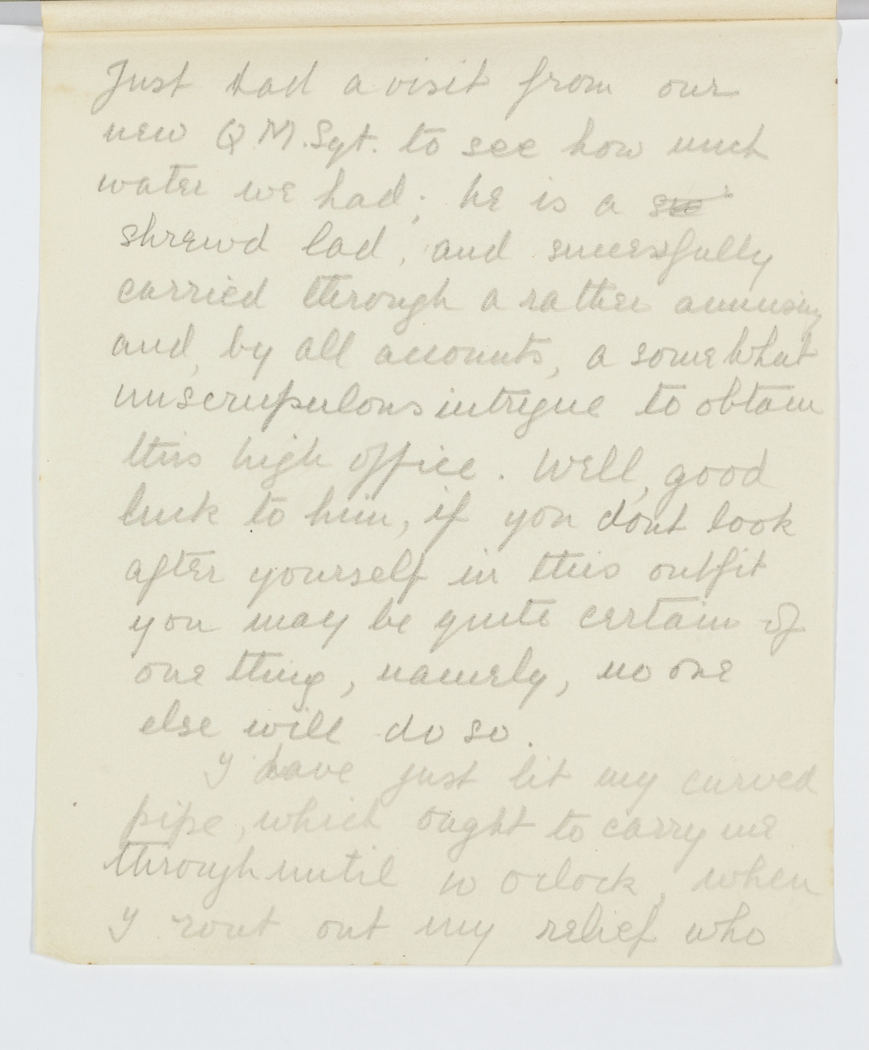 Just had a visit from our
new Q M. Sgt. to see how much
water we had; he is a
shrewd lad, and successfully
carried through a rather amusing
and, by all accounts, a somewhat
unscrupulous intrigue to obtain
this high office. Well, good
luck to him, if you dont look
after yourself in this outfit
you may be quite certain of
one thing, namely, no one
else will do so.
I have just lit my curved
pipe, which ought to carry me
through until 10 oclock, when
I rout out my relief who